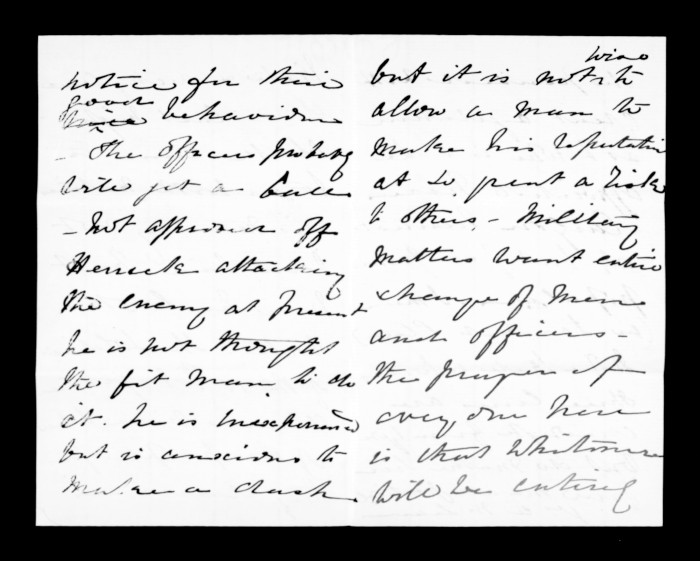 notice for their
good
nice behaviour
- The officers probably
will get a Ball
- Not approve off
Herrick attacking
the enemy at present
he is not thought
the fit man to do
it. he is inexperienced
but is anxious to
make a dash
wise
but it is not to
allow a man to
make his reputation
at so great a risk
to others - Military
Matters want entire
change of Men
and officers -
the prayer of
every one here
is that Whitmore
will be entirely